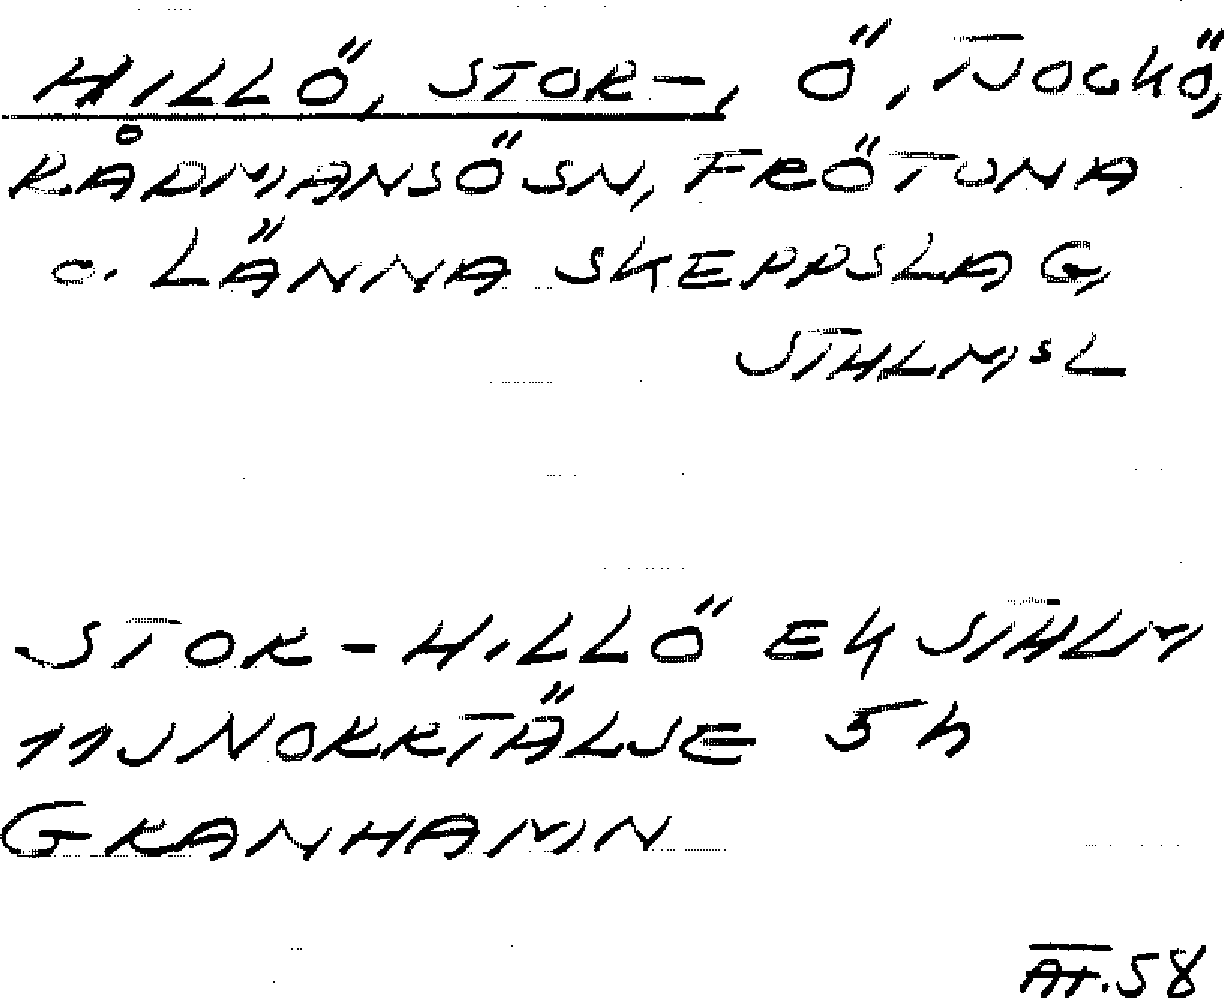 HILLÖ, STOR-, Ö, TJOCKÖ,
RÅDMANSÖ SN, FRÖTUNA
o. LÄNNA SKEPPSLAG,
STHLMS L
STOR-HILLÖ EK STHLM
11J NORRTÄLJE 5h
GRANHAMN
AT.58